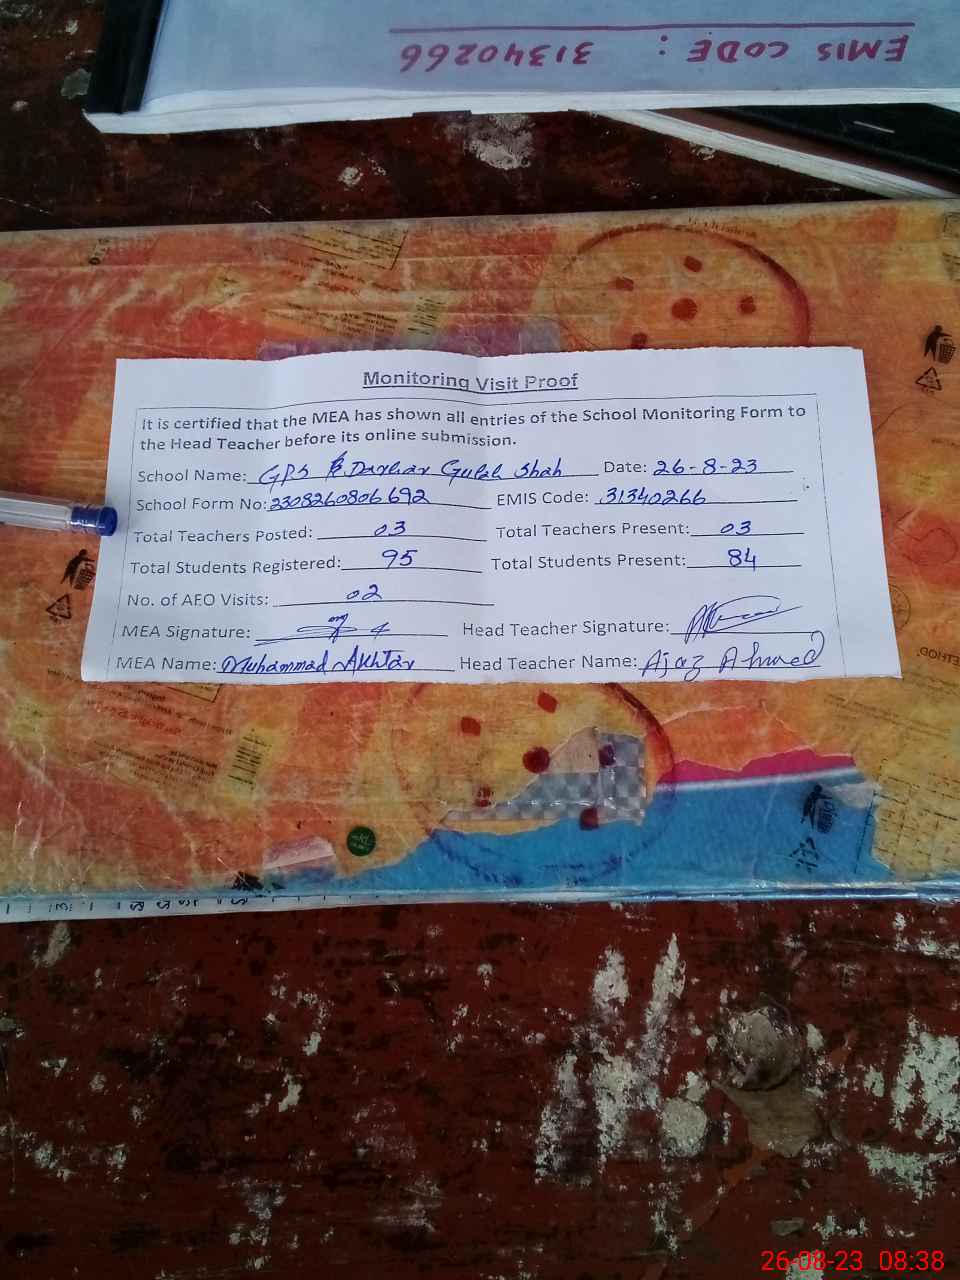 EMIS CODE : 31340266
Monitoring Visit Proof
It is certified that the MEA has shown all entries of the School Monitoring Form to
the Head Teacher before its online submission.
School Name: GPS Darbar Gulab Shah Date: 26-8-23
School Form No: 2308260806692 EMIS Code: 31340266
Total Teachers Posted: 03 Total Teachers Present: 03
Total Students Registered: 95 Total Students Present: 84
No. of AEO Visits: 02
MEA Signature: Head Teacher Signature:
MEA Name: Muhammad Akhtar Head Teacher Name: Ajaz Ahmed
26-08-23 08:38